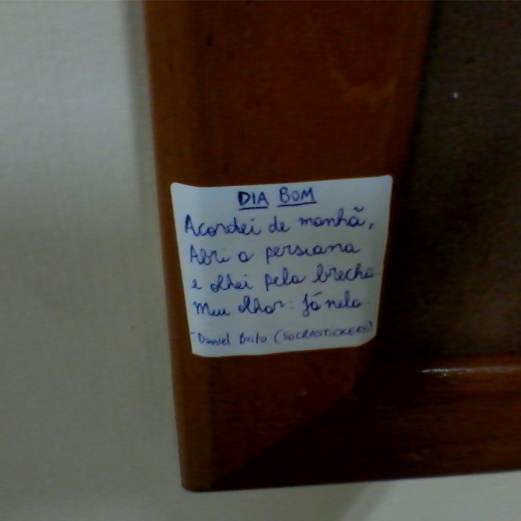 DIA BOM
Acordei de manhã,
Abri a persiana
e olhei pela brecha.
Meu olhar: Já nela.
Daniel Brito (SOCRASTICKERS)